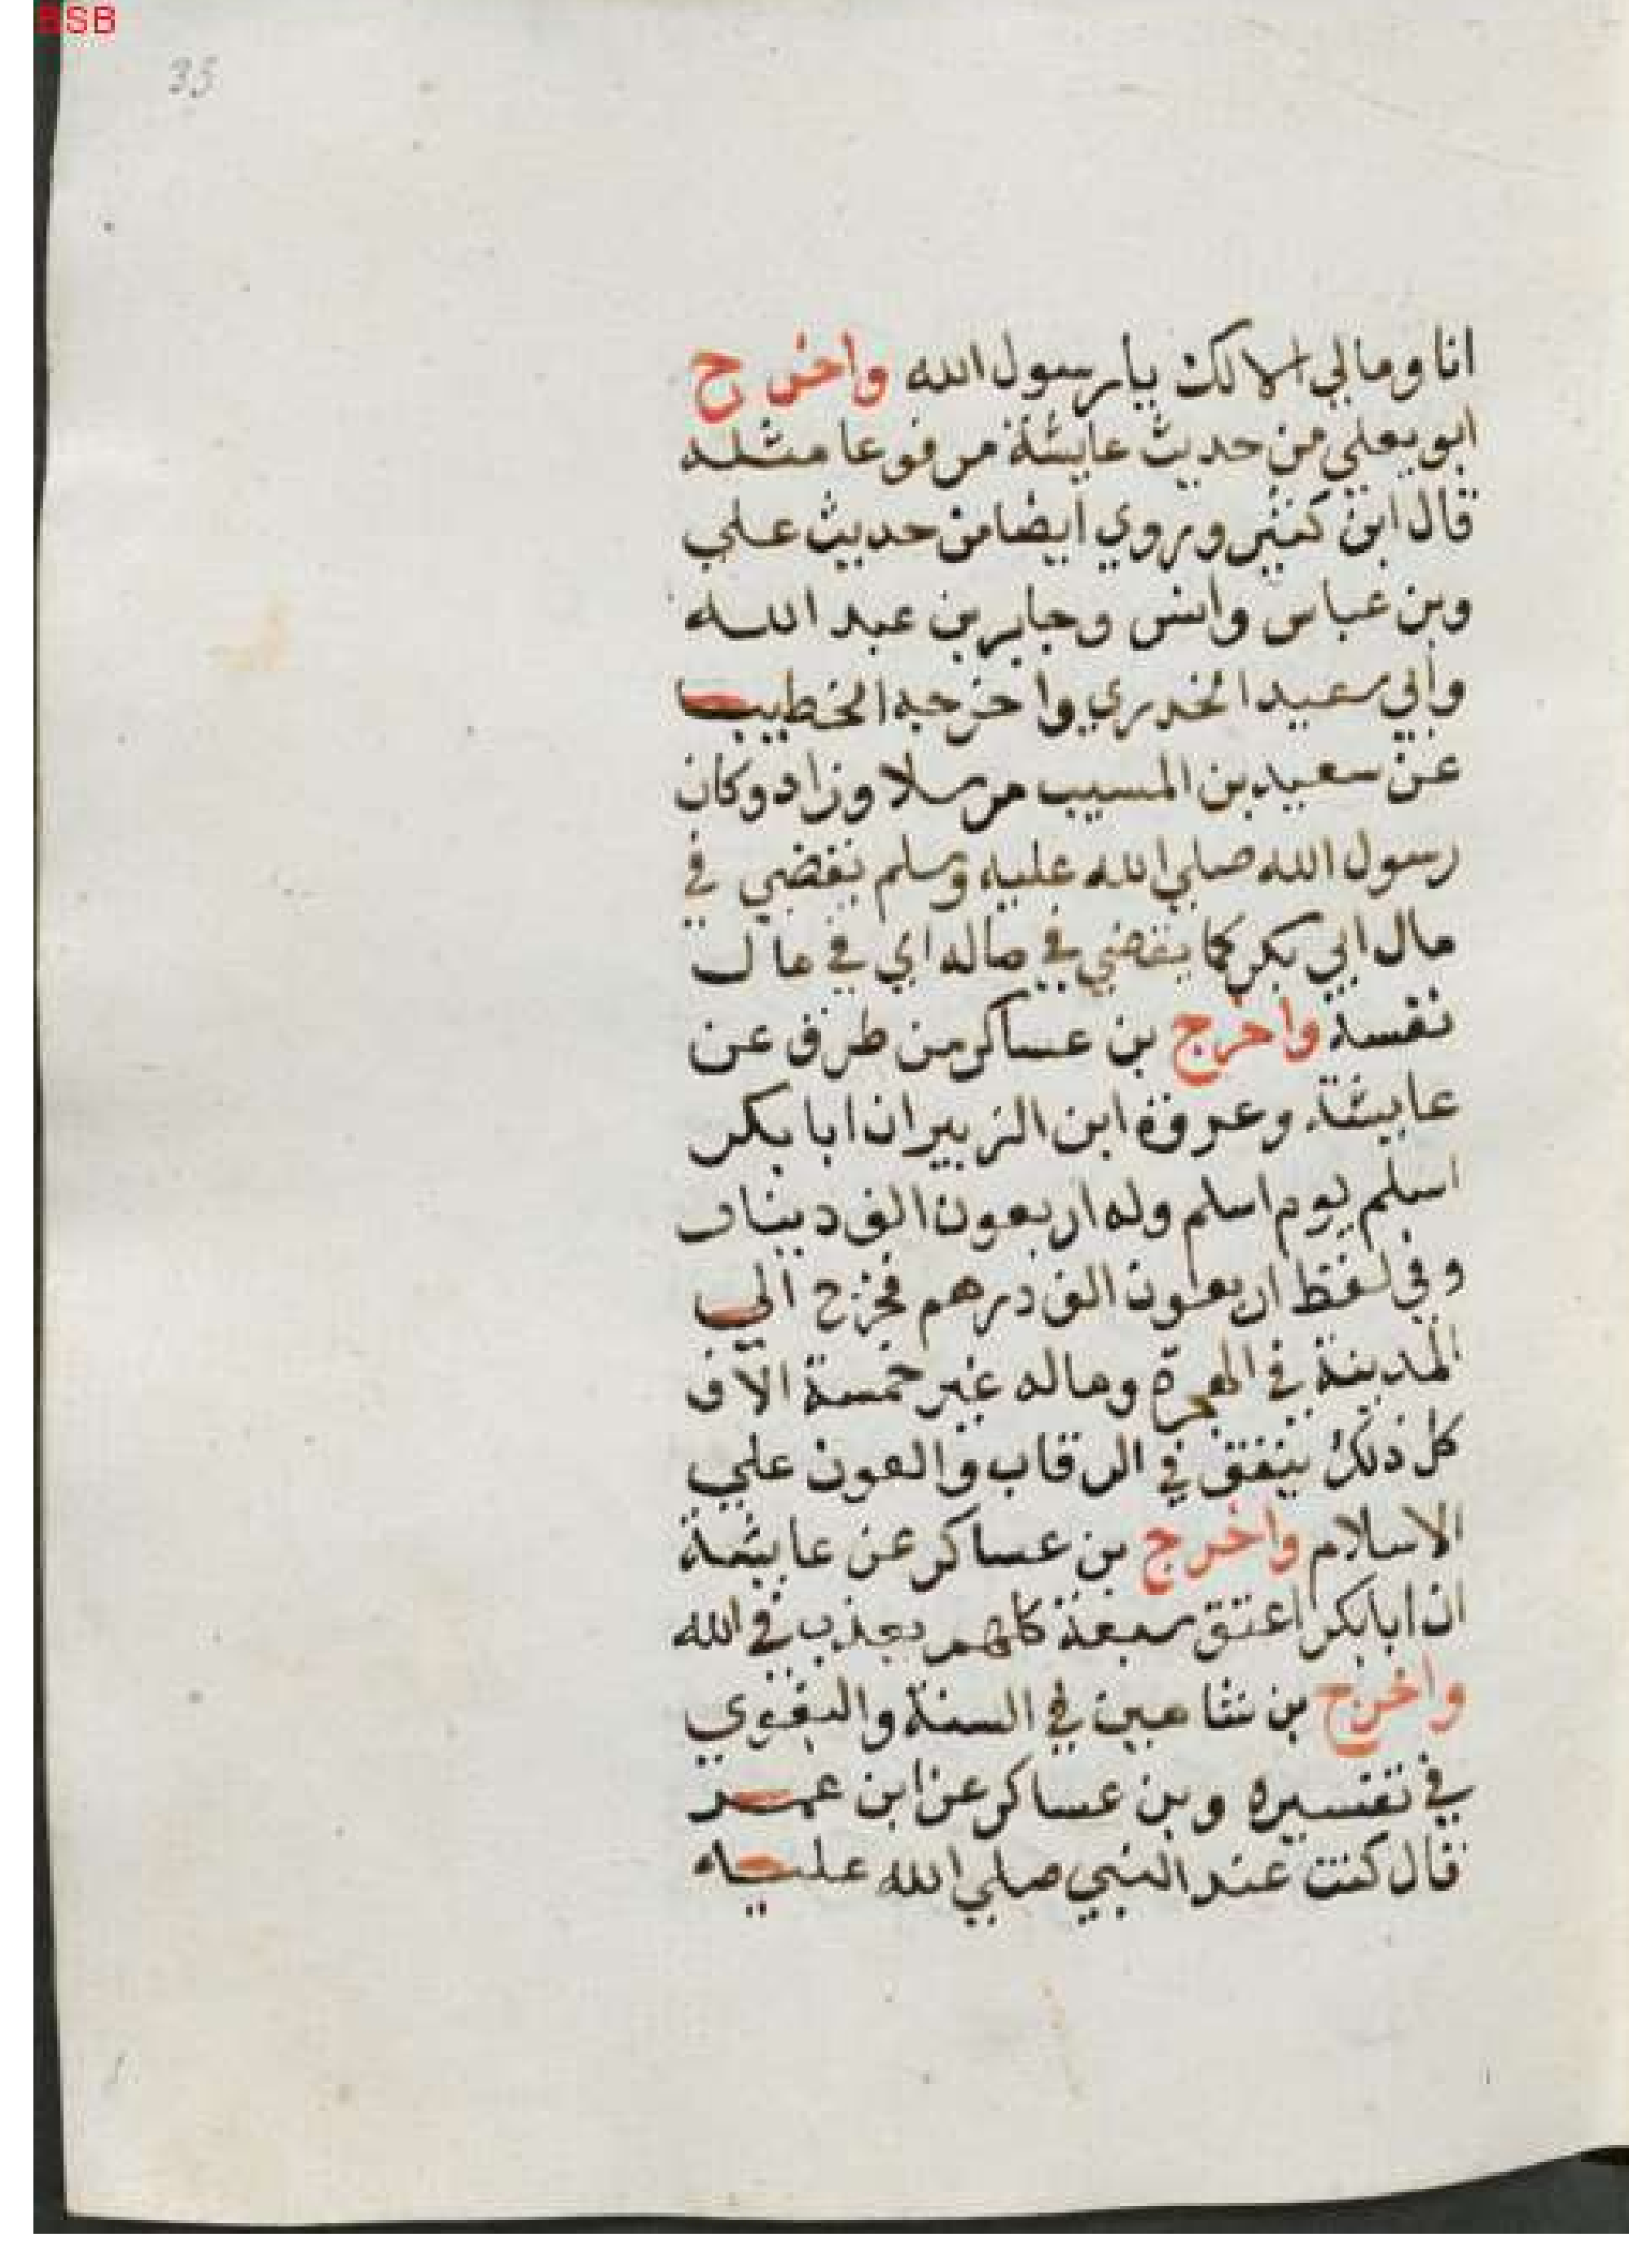 BSB
35
انا ومالي الا لك يا رسول الله واخرج
ابو يعلي من حديث عايشة مرفوعا مثله
قال ابن كثير وروي ايضا من حديث علي
وبن عباس وانس وجابر بن عبد الله
وابي سعيد الخدري واخرجه الخطيب
عن سعيد بن المسيب مرسلا وزاد وكان
رسول الله صلي الله عليه وسلم يقضي في
مال ابي بكر كما يقضي في ماله اي في مال
نفسه واخرج بن عساكر من طرق عن
عايشة وعروة ابن الزبير ان ابا بكر
اسلم يوم اسلم وله اربعون الف دينار
وفي لفظ اربعون الف درهم فخرج الي
المدينة في الهجرة وماله غير خمسة الاف
كل ذلك ينفق في الرقاب والعون علي
الاسلام واخرج بن عساكر عن عايشة
ان ابا بكر اعتق سبعة كلهم يعذب في الله
واخرج بن شاهين في السنة والبغوي
في تفسيره وبن عساكر عن ابن عمر
قال كنت عند النبي صلي الله عليه